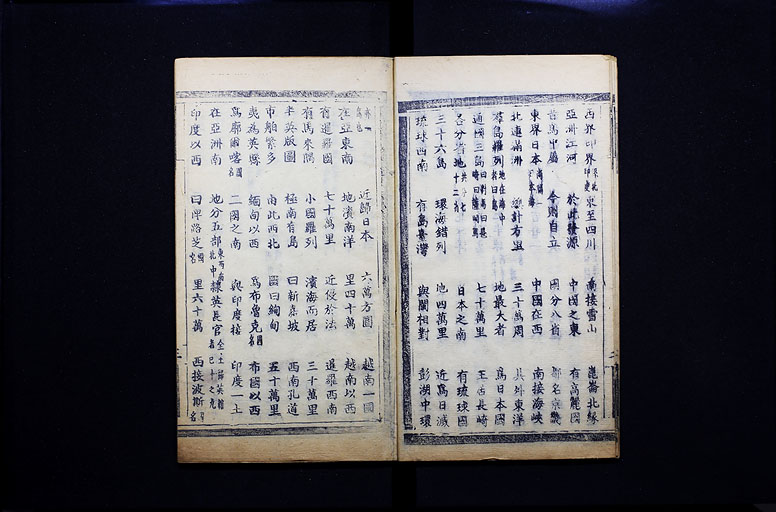 西界印界 東至四川 南接雪山 崑崙北緣
亞洲江河 於此發源 中國之東 有高麗國
昔爲中屬 今則自立 國分八省 都名京畿
東界日本海 中國在西 南接海峽
北連滿洲 總計方里 三十萬周 其外東洋
有島羅列 地在海中 地最大者 爲日本國
通國三島 七十萬里 王居長崎
各分省地 共七十二 日本之南 有琉球國
三十六島 環海錯列 地四萬里 近爲日滅
琉球西南 有島臺灣 與閩相對 彭湖中環
近歸日本 六萬方圓 越南一國
在亞東南 地濱南洋 里四十萬 越南以西
有暹羅國 七十萬里 近侵於法 暹羅西南
有馬來隅 小國羅列 濱海而居 三十萬里
半英版圖 極南有島 曰新嘉坡 西南孔道
市舶繁多 由此西北 國曰緬甸 五十萬里
夷爲英縣 緬甸以西 爲布魯克國名 布國以西
爲廓爾喀國名 二國之南 與印度接 印度一土
在亞洲南 地分五部東西南北中 隸英長官
印度以西 曰俾路芝國名 里六十萬 西接波斯